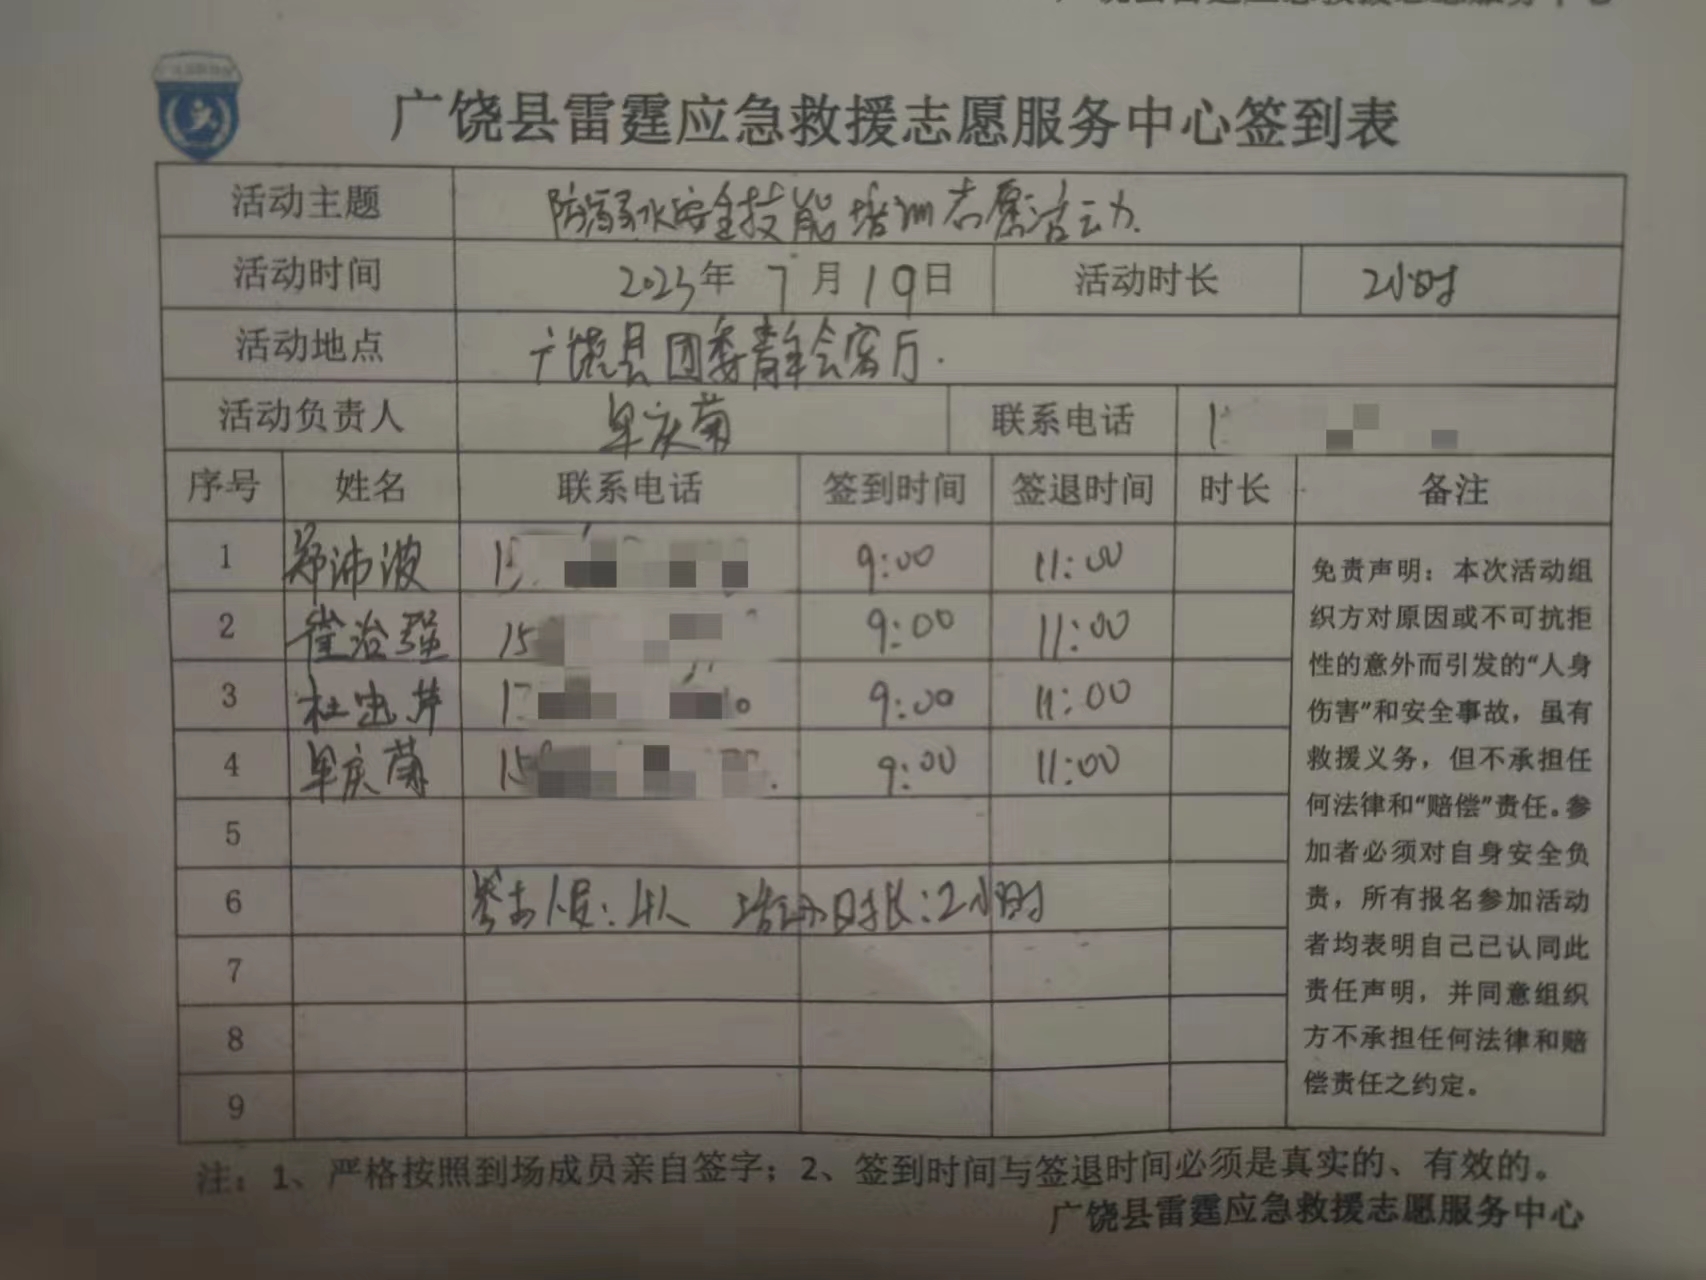 广饶县雷霆应急救援志愿服务中心签到表
活动主题 防溺水安全技能培训志愿活动
活动时间 2023年 7月19日 活动时长 2小时
活动地点 广饶县团委青年会客厅.
活动负责人 牟庆菊 联系电话 1
序号 姓名 联系电话 签到时间 签退时间 时长 备注
1 郑沛波 15 9:00 11:00
2 崔治强 15 9:00 11:00
3 杜 9:00 11:00
4 牟庆菊 15 9:00 11:00
5
6 参加人员：4人 活动时长：2小时
7
8
9
免责声明：本次活动组
织方对原因或不可抗拒
性的意外而引发的“人身
伤害”和安全事故，虽有
救援义务，但不承担任
何法律和“赔偿”责任。参
加者必须对自身安全负
责，所有报名参加活动
者均表明自己已认同此
责任声明，并同意组织
方不承担任何法律和赔
偿责任之约定。
注：1、严格按照到场成员亲自签字；2、签到时间与签退时间必须是真实的、有效的。
广饶县雷霆应急救援志愿服务中心